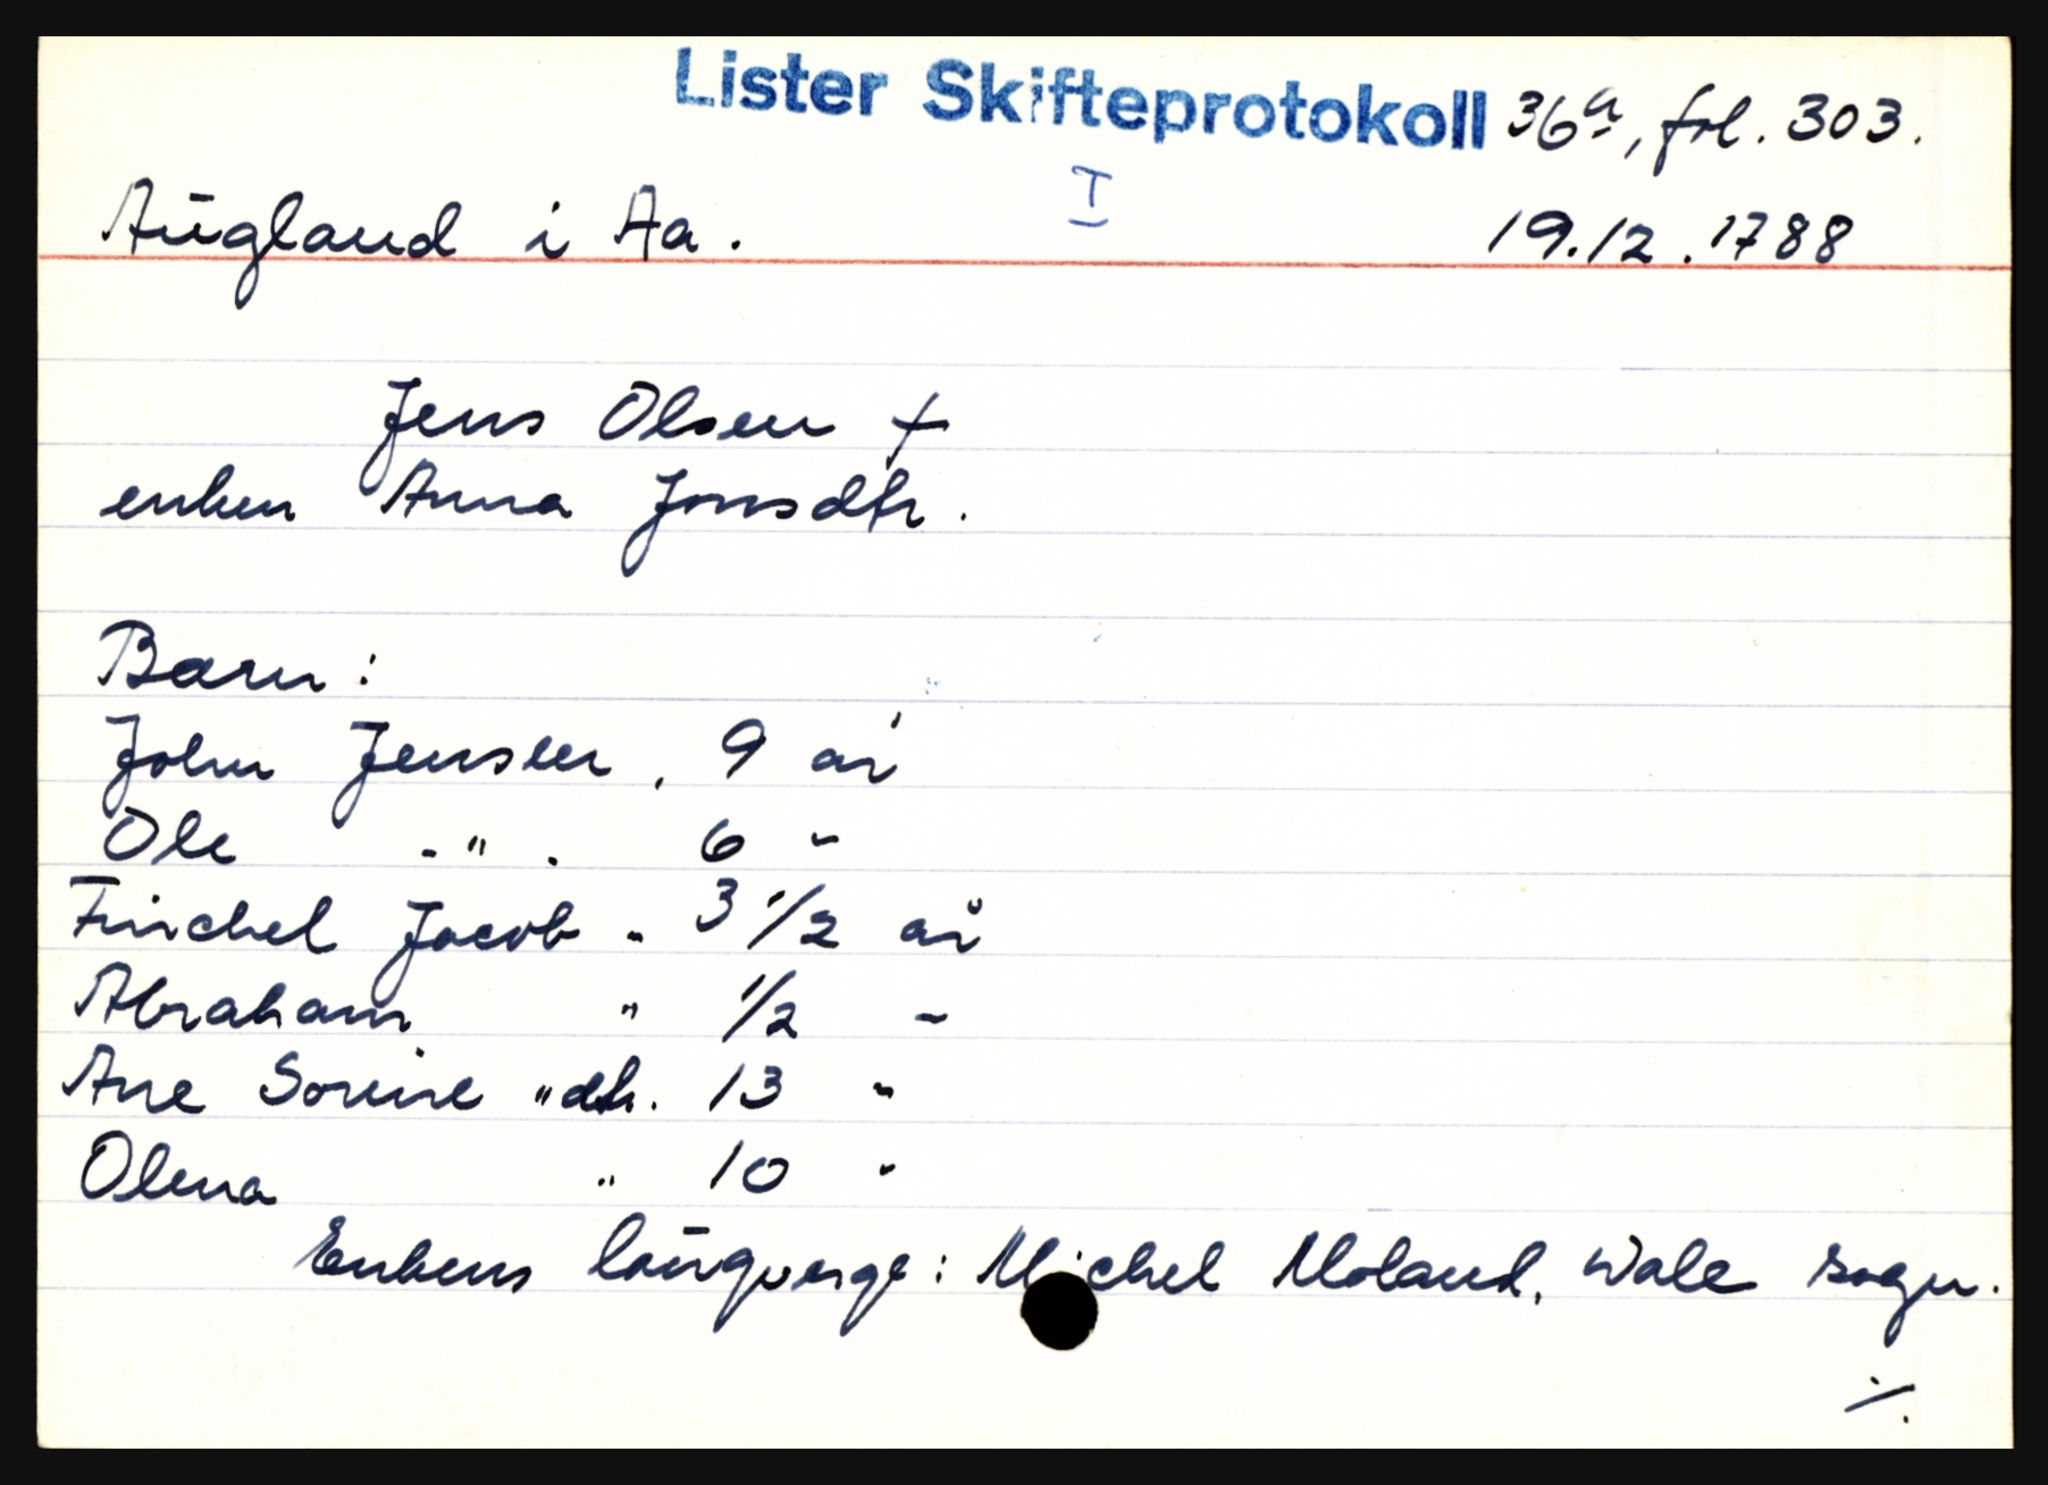 Lister Skifteprotokoll 36a, fol. 303.
I
Augland i Aa. 19.12.1788
Jens Olsen †
enken Anna Jonsdtr.
Barn:
John Jensen, 9 år
Ole -"- 6 "
Finchel Jacob " 3 1/2 år
Abraham " 1/2 "
Ane Sorine "dtr. 13 "
Olena " 10 "
Enkens laugverge: Michel Moland, Wale sogn.
./.